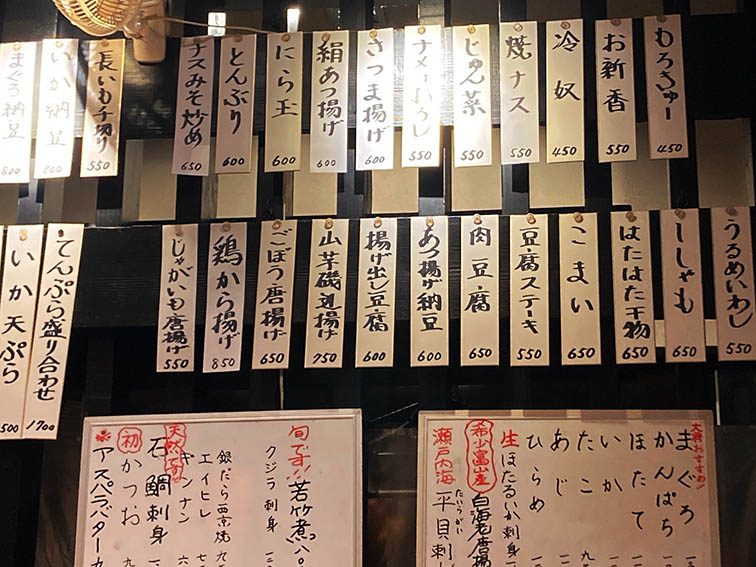 もろきゅー 450
お新香 550
冷奴 450
焼ナス 550
じゅん菜 550
ナメコおろし 550
さつま揚げ 600
絹あつ揚げ 600
にら玉 600
とんぶり 600
ナスみそ炒め 650
長いも千切り 550
いか納豆 800
まぐろ納豆 800
うるめいわし 550
ししゃも 650
はたはた干物 650
こまい 650
豆腐ステーキ 550
肉豆腐 650
あつ揚げ納豆 600
揚げ出し豆腐 600
山芋磯辺揚げ 750
ごぼう唐揚げ 650
鶏から揚げ 850
じゃがいも唐揚げ 550
てんぷら盛り合わせ 1700
いか天ぷら 500
まぐろ
かんぱち
ほたて
いか
たこ
あじ
ひらめ
生ほたるいか刺身
希少富山産
白海老唐揚
瀬戸内海
たいらがい
平貝刺し
旬です!!
若竹煮
クジラ刺身
銀だら西京焼
エイヒレ
ギンナン
天然です
石鯛刺身
初かつお
アスパラバター